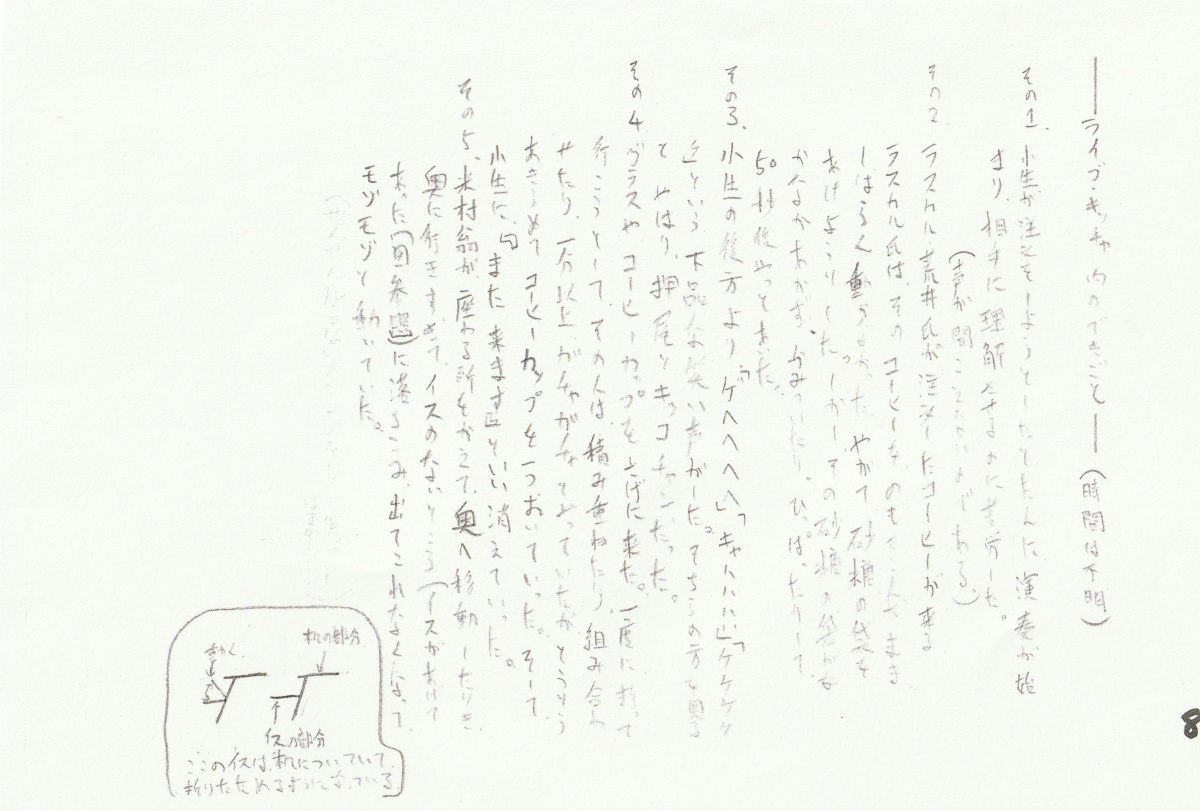 ――ライブ・キッチャ内のできごと――(時間は不明)
その1. 小生が注文をしようとしたとたんに演奏が始
まり、相手に理解させるのに苦労した。
(声が聞こえないのである。)
その2 ラスカル・荒井氏が注文したコーヒーが来る
ラスカル氏は、そのコーヒーを
しばらく動かなかった。やがて、砂糖の袋を
あけようとした。しかし、その砂糖の袋がな
かなかあかず、かみついたり、ひっぱったりして
50秒後やっとあいた。
その3、小生の後方より「ゲヘヘヘヘ」「キャハハハ」「ケケケケ
」という下品な笑い声がした。そちらの方を見る
と やはり、押尾とキッコチャンだった。
その4 グラスやコーヒーカップを上げに来た。一度に持って
行こうとして、その人は、積み重ねたり、組み合わ
せたり、一分以上ガチャガチャとやっていたが、とうとう
あきらめてコーヒーカップを一つおいていった。そして
小生に「また来ます」といい消えていった。
その5、米村翁が、座わる所をかえて、奥へ移動したとき、
奥に行きすぎて、イスのないところ(イスがあけて
あった(図参照)に落ちこみ、出てこれなくなって
モゾモゾと動いていた。
机の部分
うごく
イスの部分
ここのイスは、机についていて、
折りたためるようになっている
8